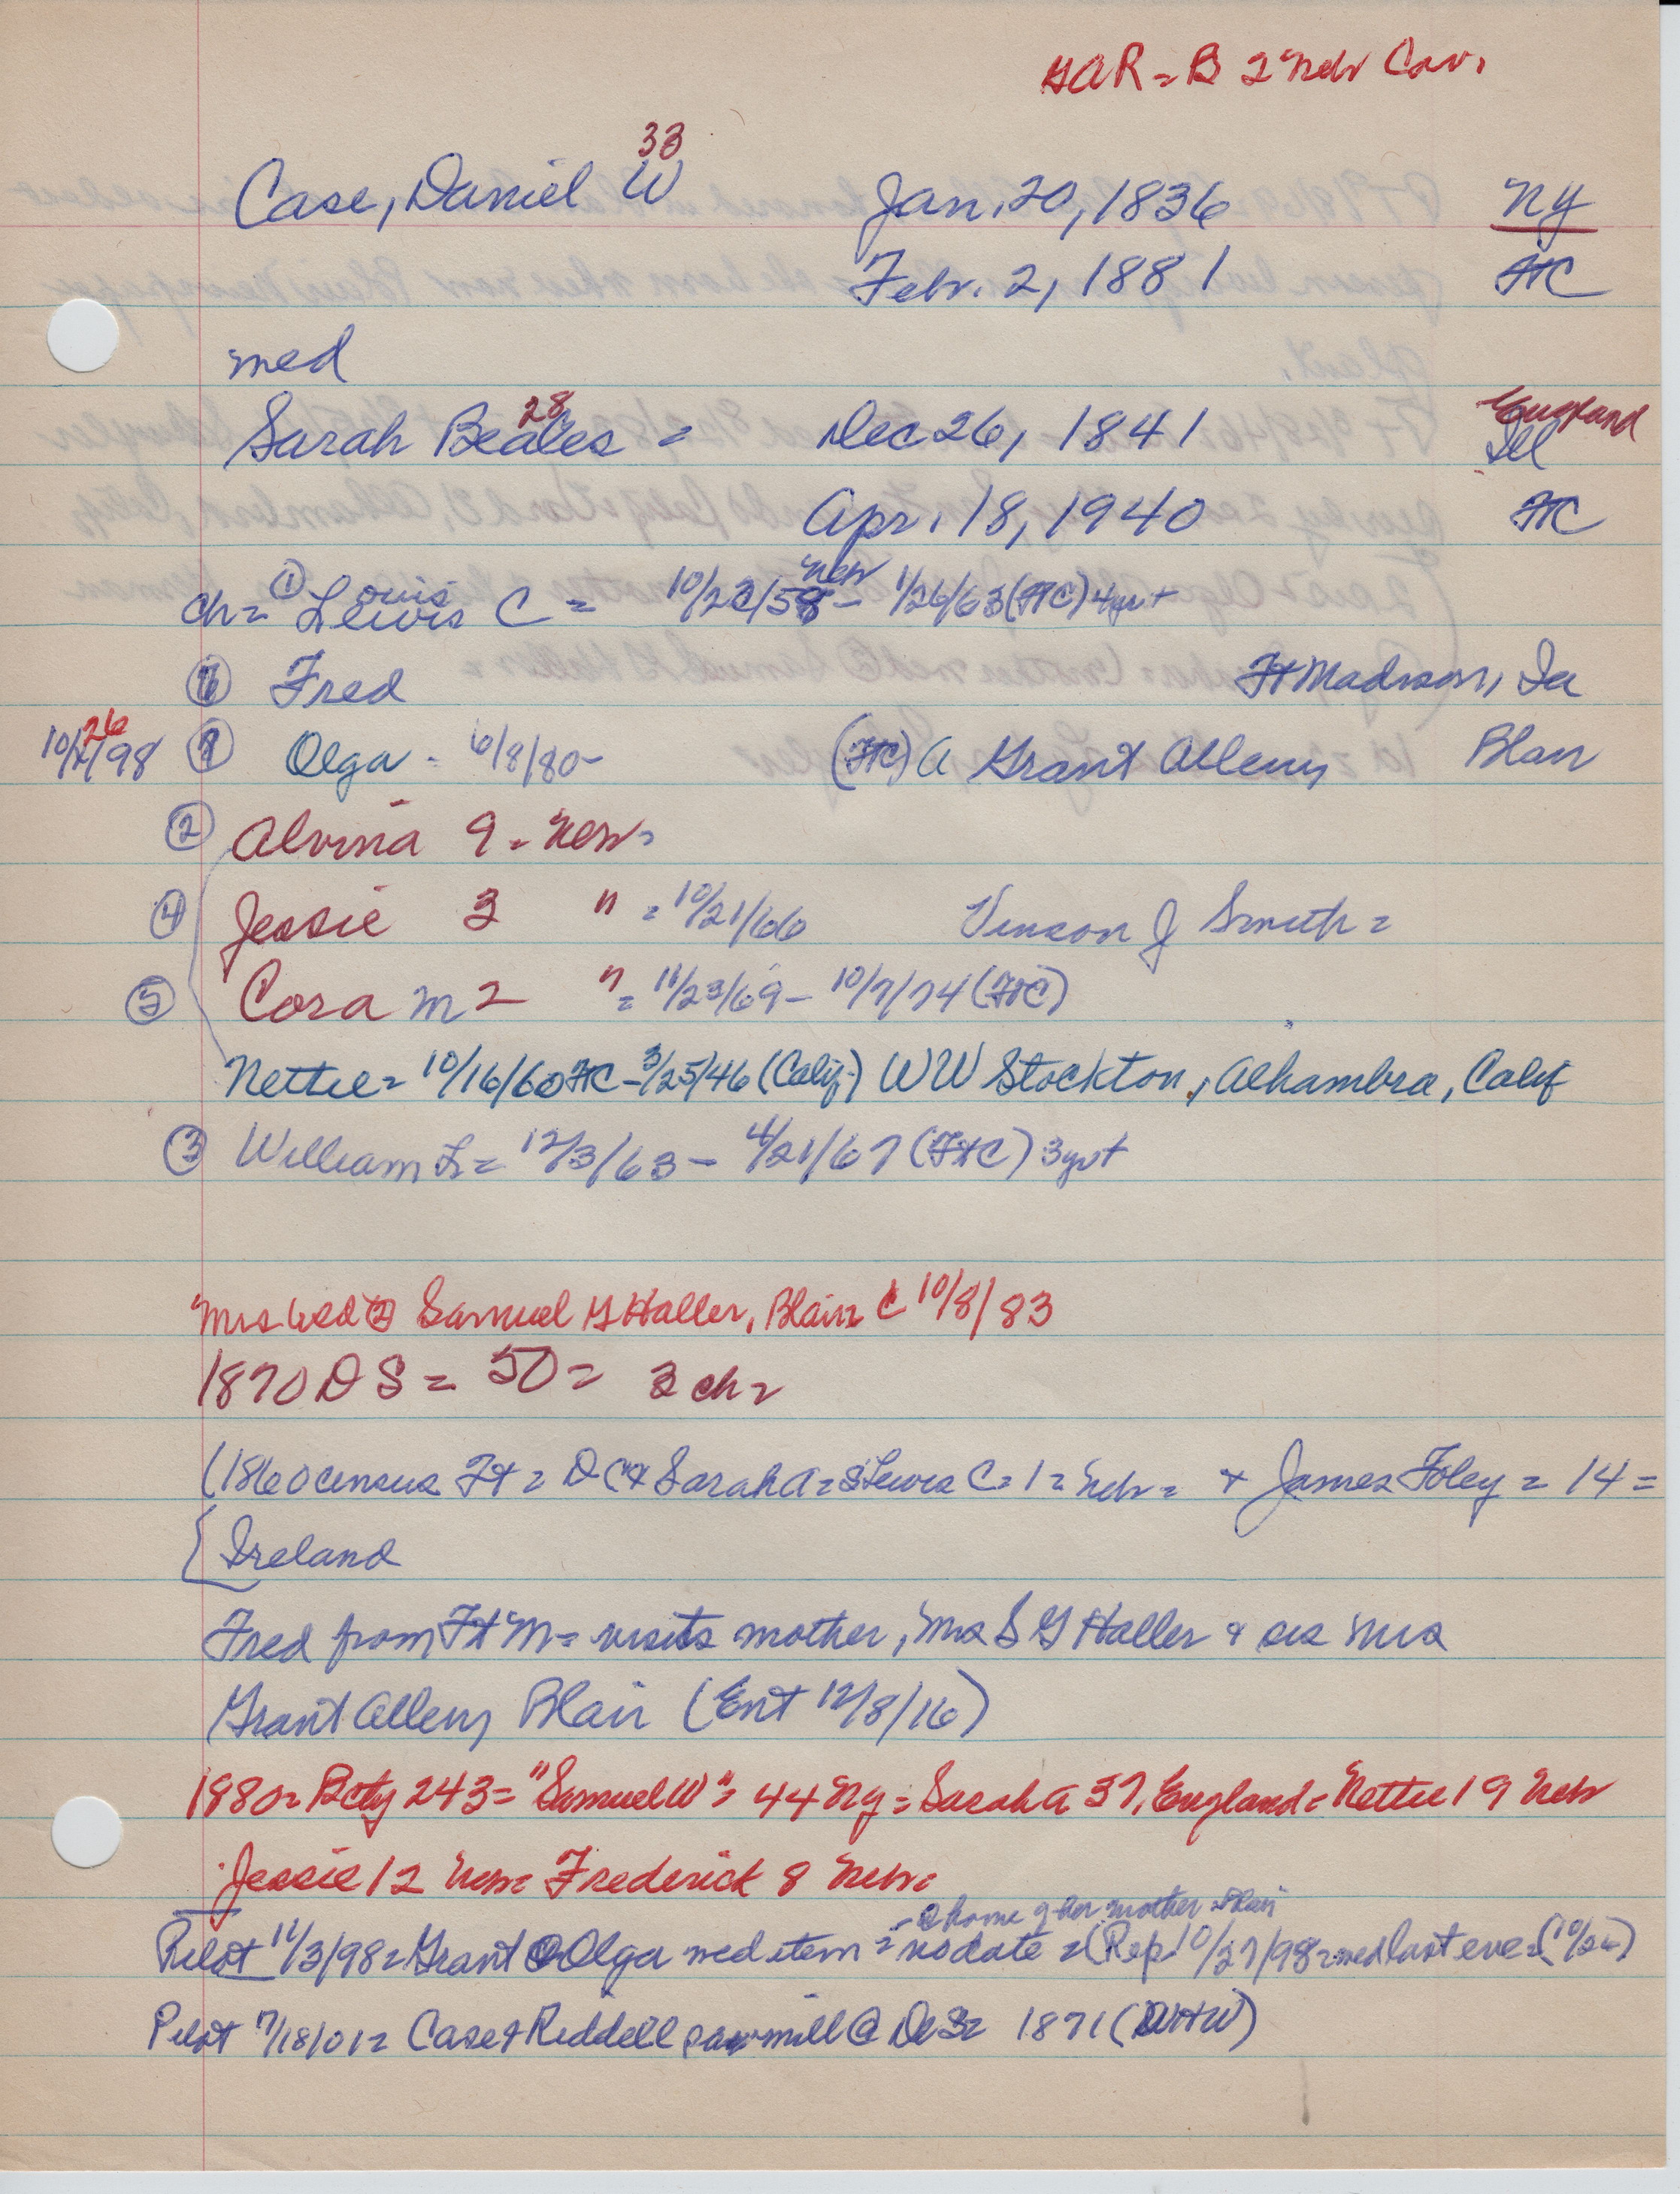 GAR = B 2 Nebr Cav.
33
Case, Daniel W Jan. 20, 1836 NY
Febr. 2, 1881 FtC
med
28 England
Sarah Beales = Dec 26, 1841 Ill
Apr. 18, 1940 FtC
ouis Nebr
ch = ① Lewis C = 10/23/58 - 1/26/63 (FtC) 4yr+
Fred Ft Madison, Ia
26
10/ /98 Olga - 6/8/80- (FtC) A Grant Allen, Blair
② Alvina 9 - Nebr =
④ Jessie 3 " = 10/21/66 Vinson J Smith =
⑤ Cora M 2 " = 11/23/69 - 10/7/74 (FtC)
Nettie = 10/16/60 FtC - 3/25/46 (Calif) WW Stockton, Alhambra, Calif
③ William L = 12/3/63 - 4/21/67 (FtC) 3yr+
Mrs wed ② Samuel G Haller, Blair 10/8/83
1870 D S = 50 = 3 ch =
(1860 census Ft = D C + Sarah A = Lewis C = 1 = Nebr = + James Foley = 14 =
Ireland
Fred from Ft M = visits mother, Mrs S G Haller + sis Mrs
Grant Allen, Blair (Ent 12/8/16)
1880 = Bcty 243 = "Samuel W" = 44 NY = Sarah A 37, England = Nettie 19 Nebr
Jessie 12 Nebr = Frederick 8 Nebr =
- @ home of her mother Blair
Pilot 11/3/98 = Grant Olga wed item = no date = (Rep 10/27/98 = wed last eve = (10/26)
Pilot 7/18/01 = Case + Riddell sawmill @ DeS = 1871 (WHW)